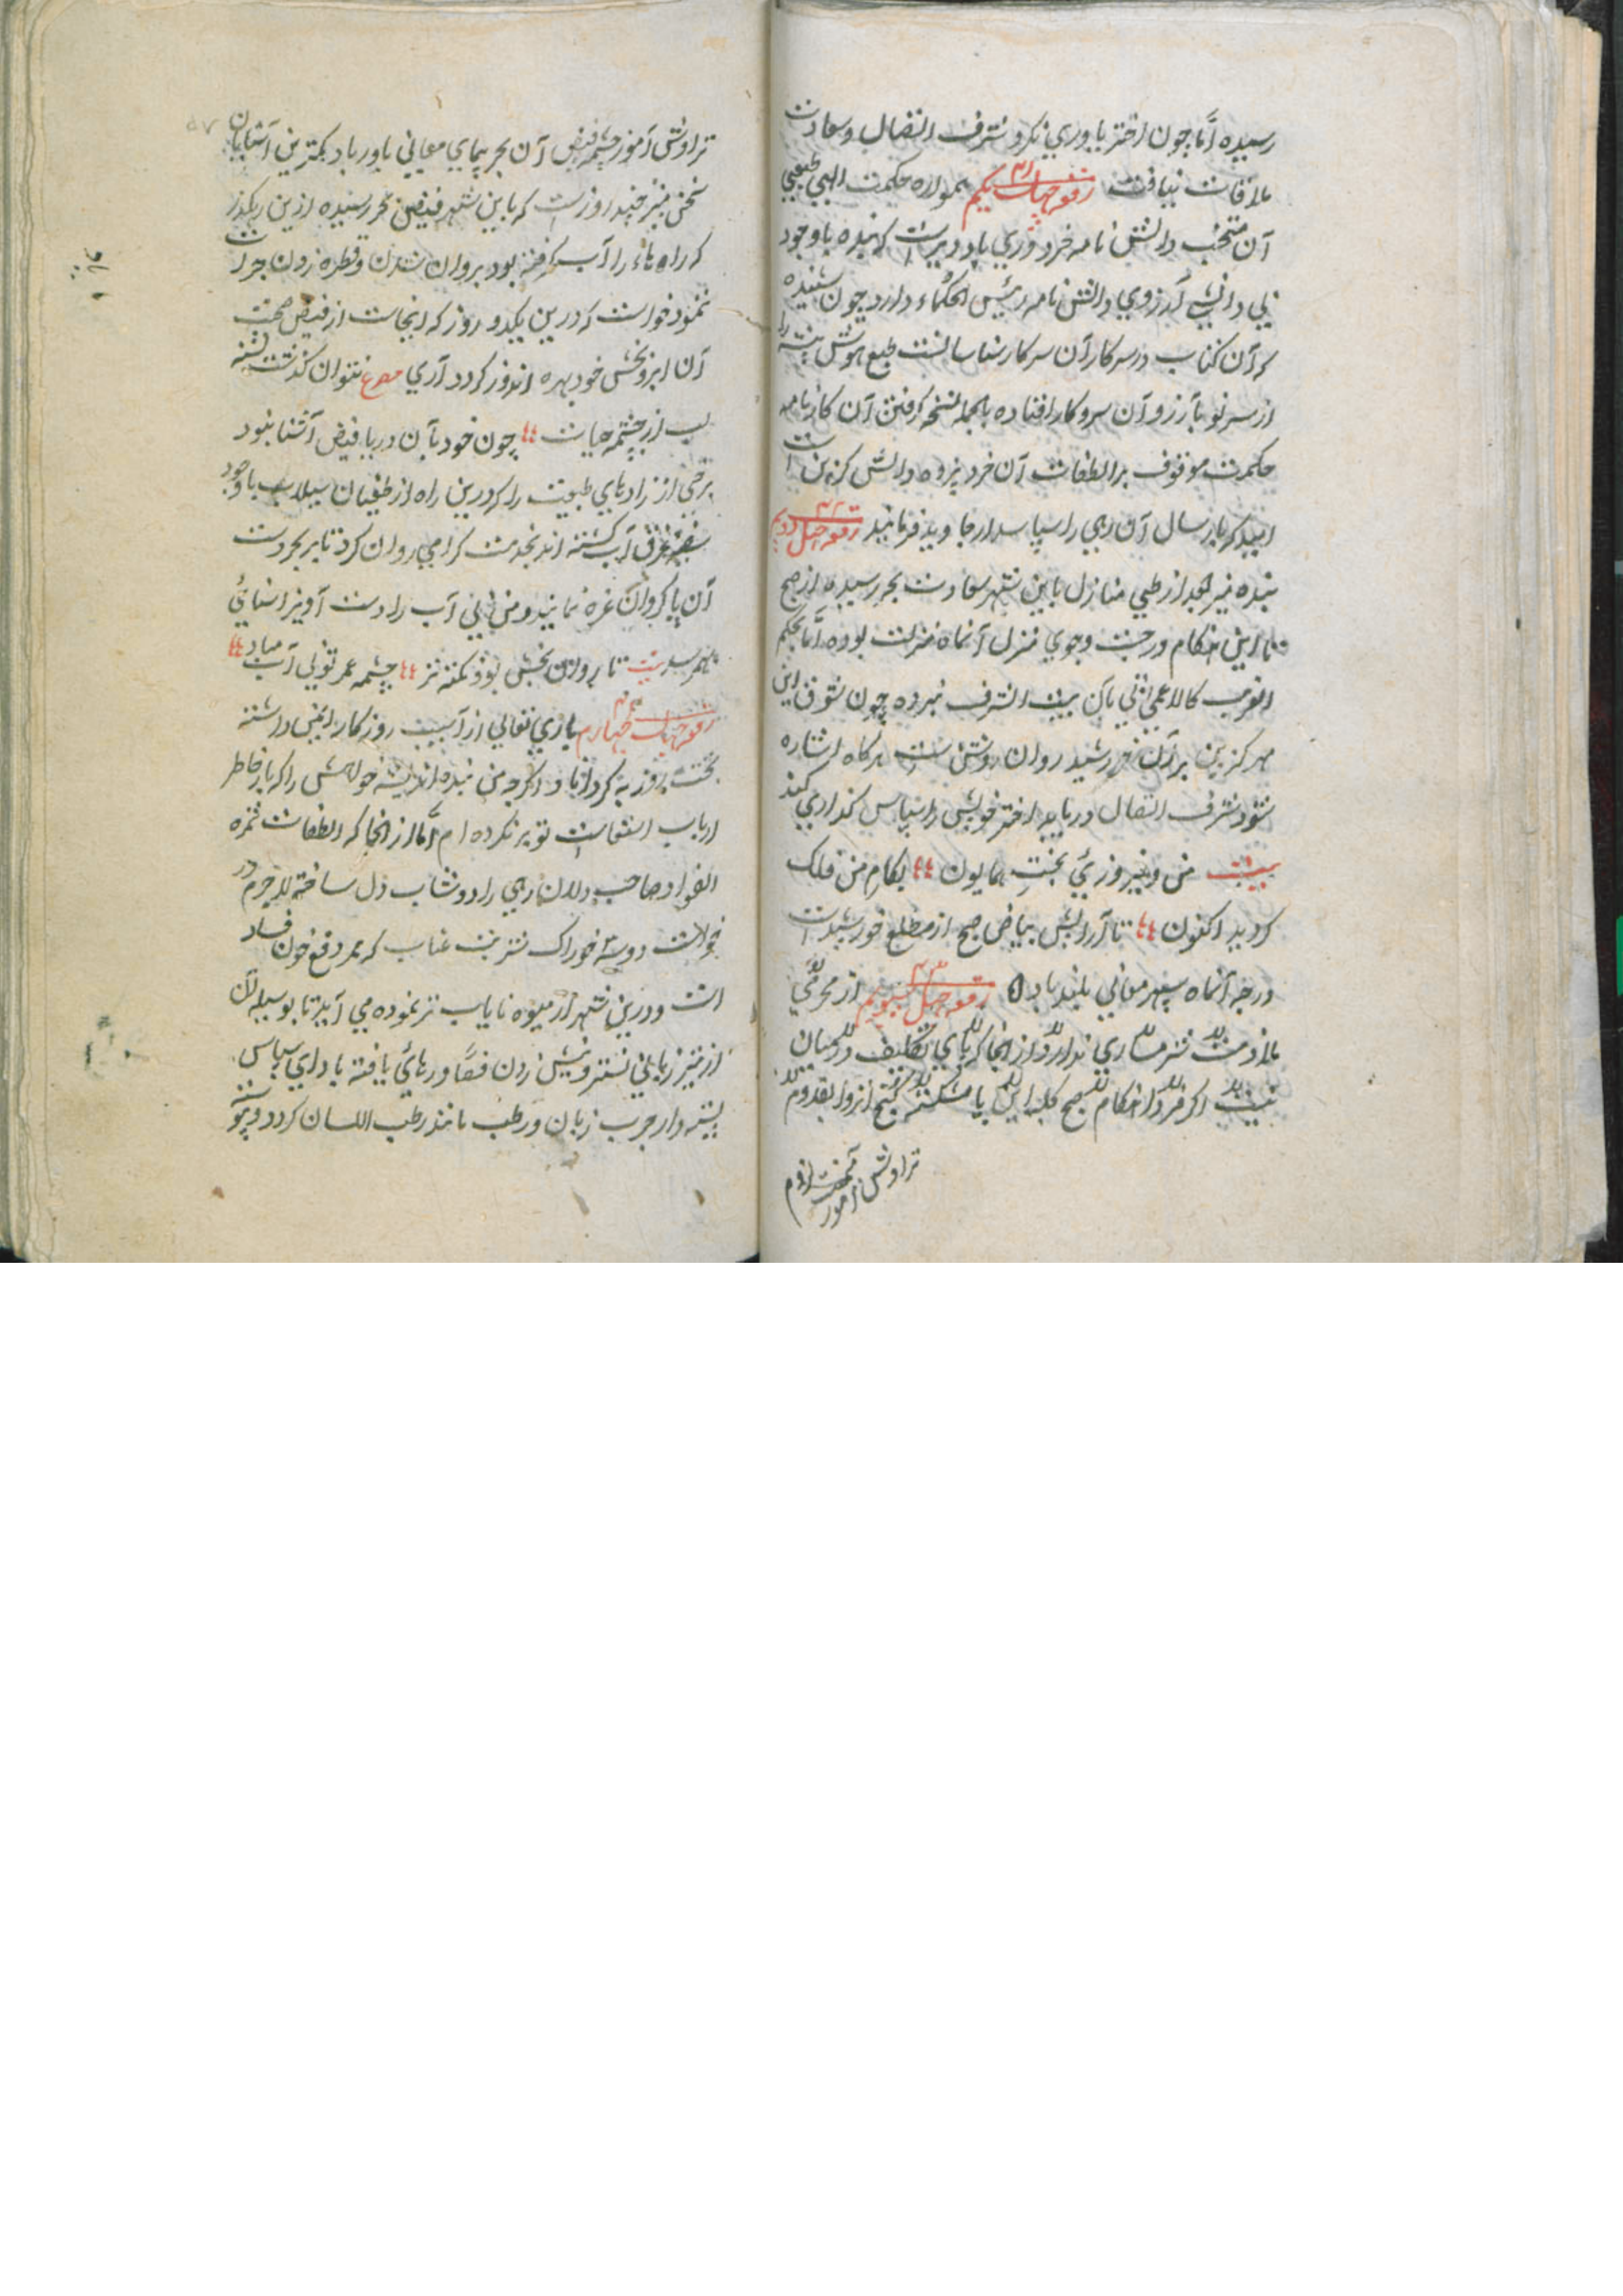 رسیده امّا چون اختر یاوري نکرد شرف اتصال و سعادت
ملاقات نیافت رقعه چهل یکم ۴۱ همواره حکمت الهي طبیعي
آن منتخب دانش نامه خرد وري یاد دیر است که بنده باوجود
بي دانشي آرزوي دانش نامه رئیس الحکماء دارد چون شنیده
که آن کتاب در سرکار آن سرکار شناساست طبع هوش پیشه را
از سر نو بآرزو آن سروکار افتاده بالجمله نسخه گرفتن آن کارنامه
حکمت موقوف بر التفات آن خرد پژوه دانش گزین است
امید که بارسال آن رهي را سپاسدار جاوید فرمایند رقعه چهل دویم ۴۲
بنده نیز بعد از طي منازل باین شهر سعادت بحر رسیده از صبح
تا این هنگام در جست وجوي منزل آنماه منزلت بوده امّا بحکم
الغریب کالاعمي پي بآن بیت الشرف نبرده چون شوق این
مهر گزین بر آن خورشید روان روشن ست هرگاه اشاره
شود شرف اتصال دریابد اختر خویش را سپاس گذاري کند
بیت من و فیروزيء بخت همایون ؞؞ بکام من فلک
گردید اکنون ؞؞ تا آرایش بیاض صبح از مطلع خورشید است
درجه آنماه سپهر معاني بلند باد رقعه چهل سیوم ۴۳ از محرمي
ملازمت شرمساري ندارد از انجا که پاي تکلیف در میان
نیست اگر فردا هنگام صبح کلبه این پا شکسته کنج انزوا بقدوم
تراوش آموز
تراوش آموز چشمه فیض آن بحر پیماي معاني یاور باد کمترین آشنایان
سخن نیز چند روز است که باین شهر فیض بحر رسیده ازین رهگذر
که راه هاء را آب گرفته بود بروان شدن و قطره زدن جرات
ننمود خواست که درین یکدو روز که اینجاست از فیض صحبت
آن ابرو بخش خود بهره اندوز گردد آري مصرع نتوان گذشت تشنه
لب از چشمه حیات ؞؞ چون خود بآن دریا فیض آشنا نبود
برخي از زادهاي طبیعت را که درین راه از طغیان سیلاب باوجود
سفینه غرق آب گشته اند بخدمت گرامي روان کرد تا بر بحر دست
آن پاک روان عرضه نمایند و من بي آب را دست آویز آشنائي
بهم رسد بیت تا روان بخش بود نکته تر ؞؞ چشمه عمر تو بي آب مباد ؞؞
رقعه چهل چهارم ۴۴ باري تعالي از آسیب روزگار ایمن داشته
بخت روز به گرداناد اگرچه من بنده اندیشه خواهش را که بار خاطر
ارباب استقامت تو بر نکرده ام امّا از انجا که التفات ثمره
الفواد صاحب دلان رهي را دوشاب دل ساخته لاجرم در
خواست دوسه خوراک شربت عناب که ممد دفع خون فساد
است و درین شهر از میوه نایاب تر نموده مي آید تا بوسیله آن
از تیز زباني نشتر و نیش زدن فصّاد رهائي یافته بادای سپاس
پسته وار چرب زبان و رطب مانند رطب اللسان گردد و پیوسته